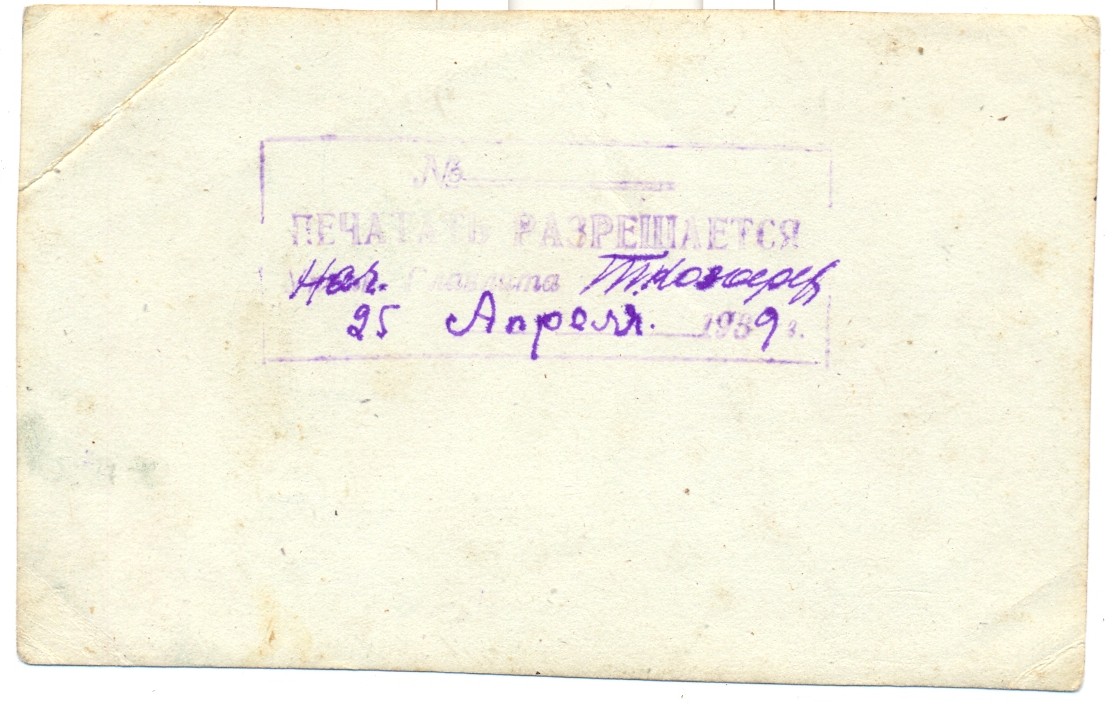 №
ПЕЧАТАТЬ РАЗРЕШАЕТСЯ
Нач. Главлита
25 Апреля. 1939 г.